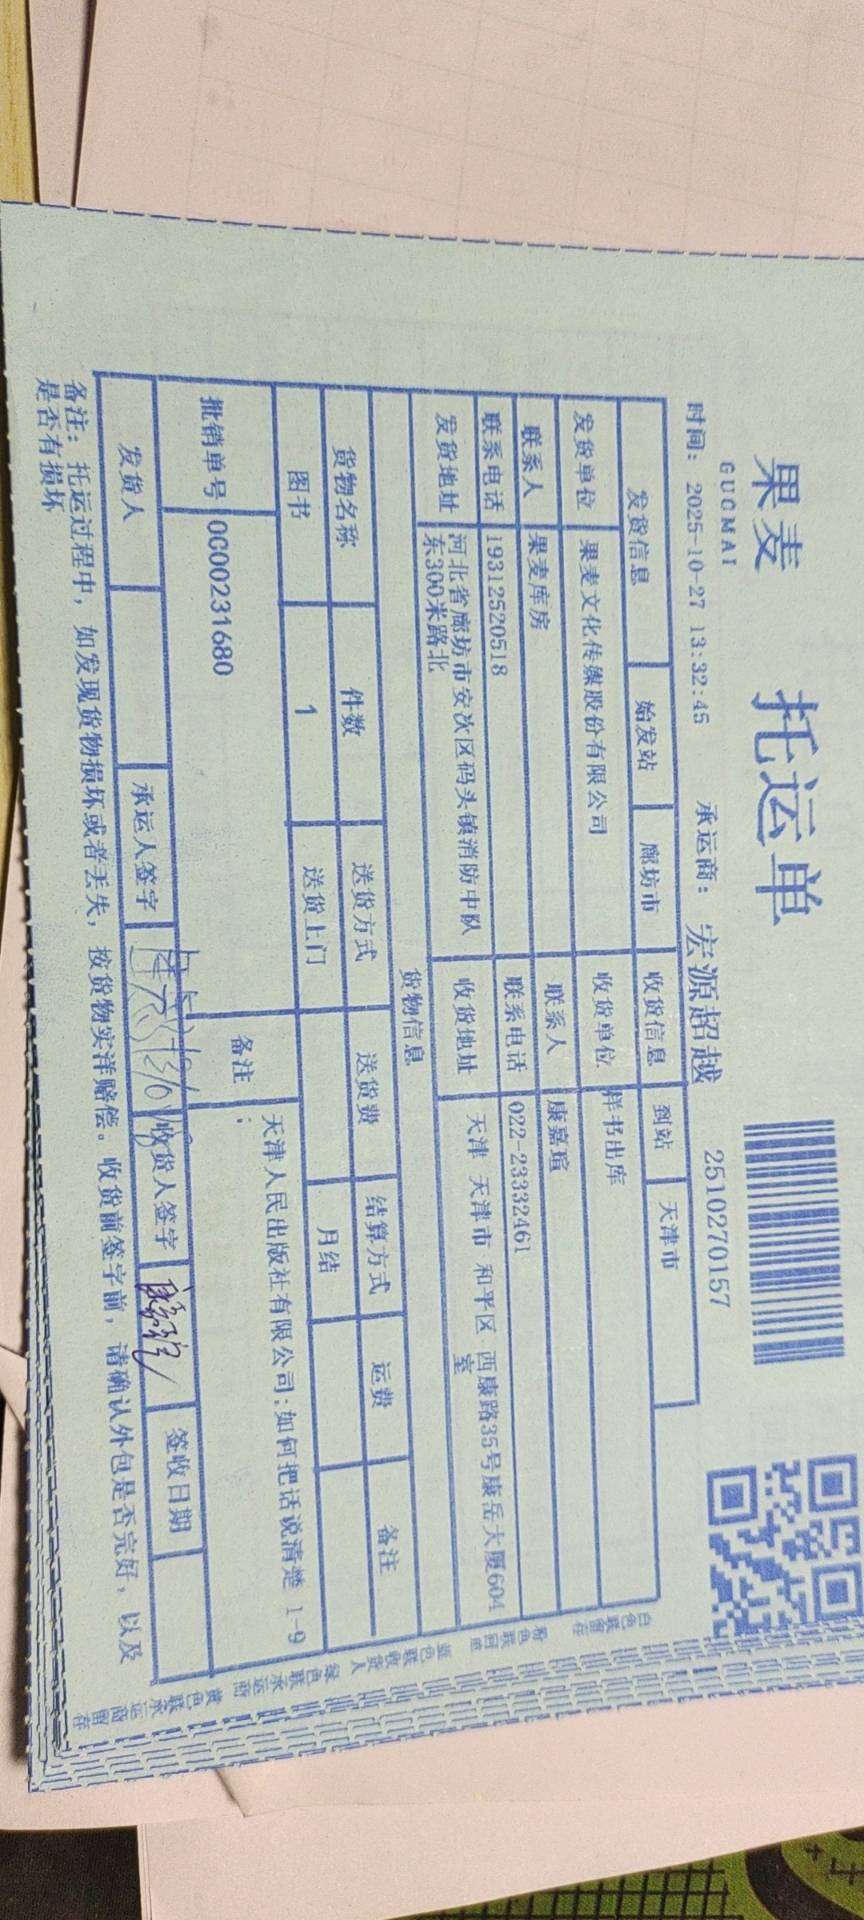 果麦
GUOMAI
托运单
时间: 2025-10-27 13:32:45 承运商: 宏源超越 2510270157
发货信息 始发站 廊坊市 收货信息 到站 天津市
发货单位 果麦文化传媒股份有限公司 收货单位 样书出库
联系人 果麦库房 联系人 康嘉瑄
联系电话 19312520518 联系电话 022-23332461
发货地址 河北省廊坊市安次区码头镇消防中队
东300米路北
收货地址 天津 天津市 和平区 西康路35号康岳大厦604
室
货物信息
货物名称 件数 送货方式 送货费 结算方式 运费 备注
图书 1 送货上门 月结
批销单号 0C00231680 备注 天津人民出版社有限公司:如何把话说清楚 1-9
;
发货人 承运人签字 收货人签字 签收日期
备注: 托运过程中, 如发现货物损坏或者丢失, 按货物实洋赔偿。收货前签字前, 请确认外包是否完好, 以及
是否有损坏
白色联留存
粉色联回单
蓝色联收货人
绿色联承运商
黄色联承运商留存